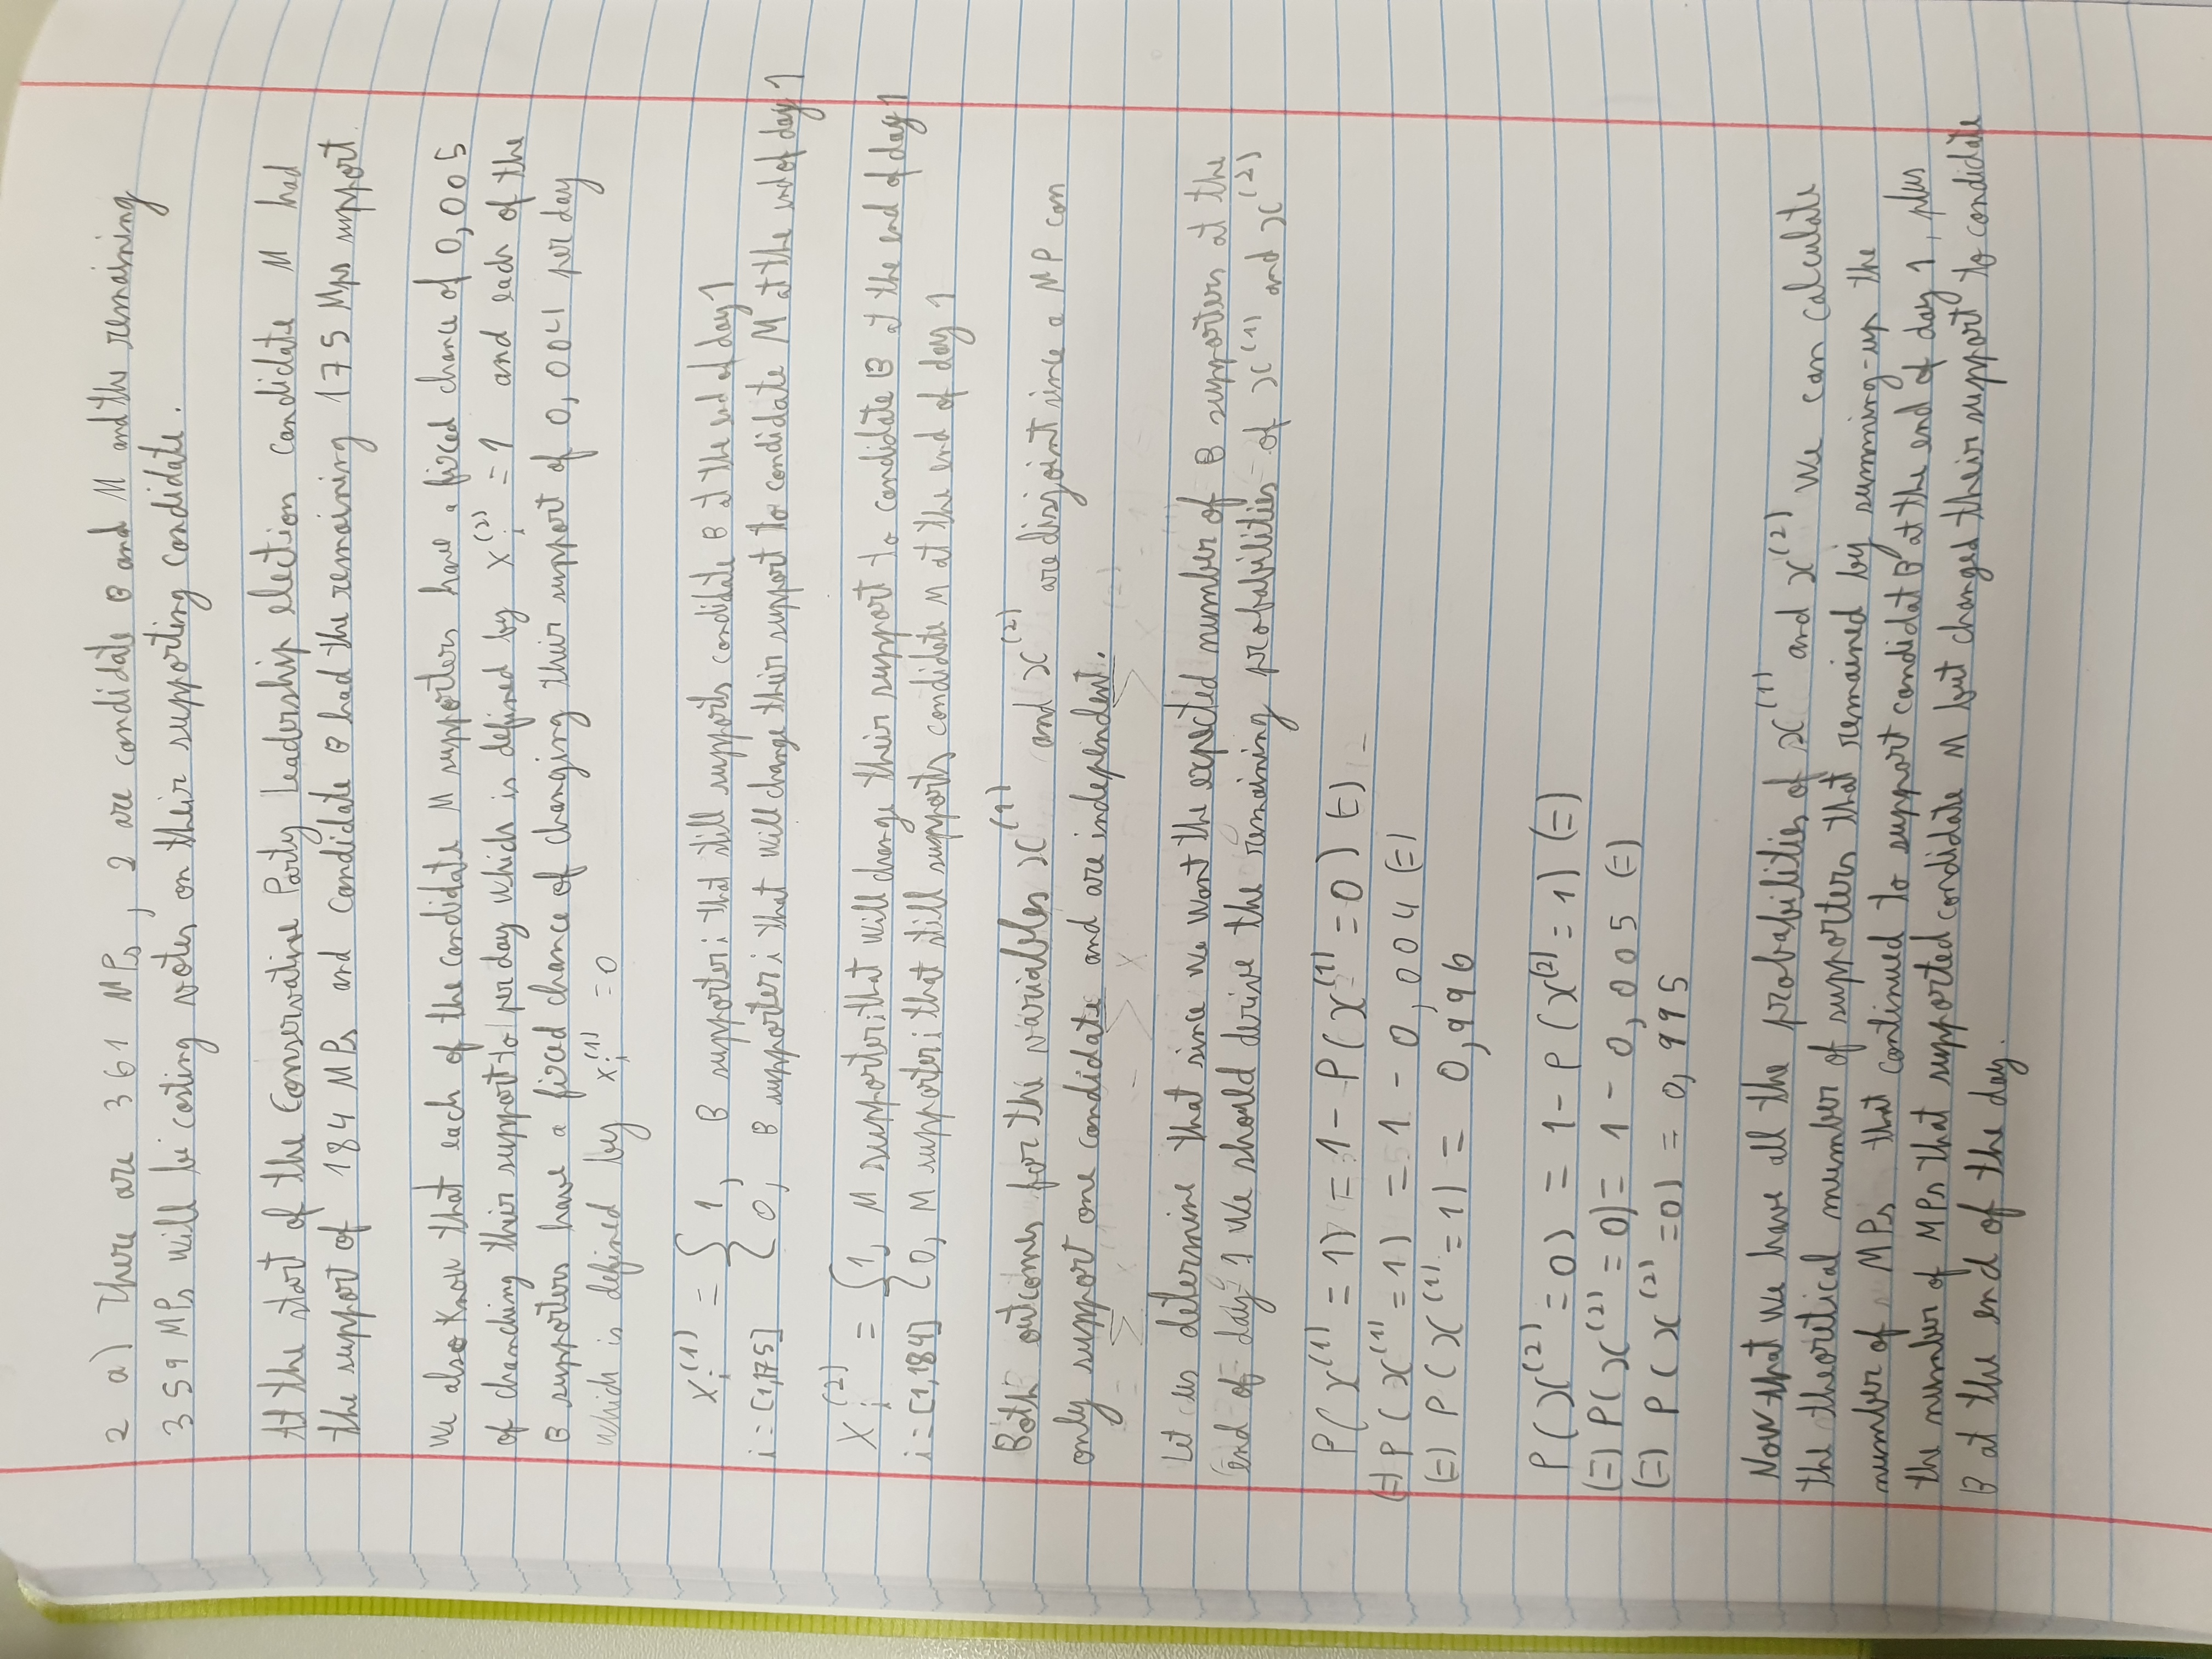 2 a) There are 361 MPs, 2 are candidate B and M and the remaining
359 MPs will be casting votes on their supporting candidate.
At the start of the Conservative Party Leadership election candidate M had
the support of 184 MPs and candidate B had the remaining 175 Mps support.
We also know that each of the candidate M supporters have a fixed chance of 0,005
of chanching their support to per day which is defined by Xᵢ⁽²⁾ = 1 and each of the
B supporters have a fixed chance of changing their support of 0,004 per day
which is defined by xᵢ⁽¹⁾ = 0
Xᵢ⁽¹⁾ = { 1, B supporter i that still supports candidate B at the end of day 1
i = [1,175] 0, B supporter i that will change their support to candidate M at the end of day 1
Xᵢ⁽²⁾ = { 1, M supporter i that will change their support to candidate B at the end of day 1
i = [1,184] 0, M supporter i that still supports candidate M at the end of day 1
Both outcomes for the variables x⁽¹⁾ and x⁽²⁾ are disjoint since a MP can
only support one candidate and are independent.
Let us determine that since we want the expected number of B supporters at the
end of day 1 we should derive the remaining probabilities of x⁽¹⁾ and x⁽²⁾
P(x⁽¹⁾ = 1) = 1 - P(x⁽¹⁾ = 0) (=)
(=) P(x⁽¹⁾ = 1) = 1 - 0,004 (=)
(=) P(x⁽¹⁾ = 1) = 0,996
P(x⁽²⁾ = 0) = 1 - P(x⁽²⁾ = 1) (=)
(=) P(x⁽²⁾ = 0) = 1 - 0,005 (=)
(=) P(x⁽²⁾ = 0) = 0,995
Now that we have all the probabilities of x⁽¹⁾ and x⁽²⁾ we can calculate
the theoretical number of supporters that remained by summing-up the
number of MPs that continued to support candidat B at the end of day 1, plus
the number of MPs that supported candidate M but changed their support to candidate
B at the end of the day.